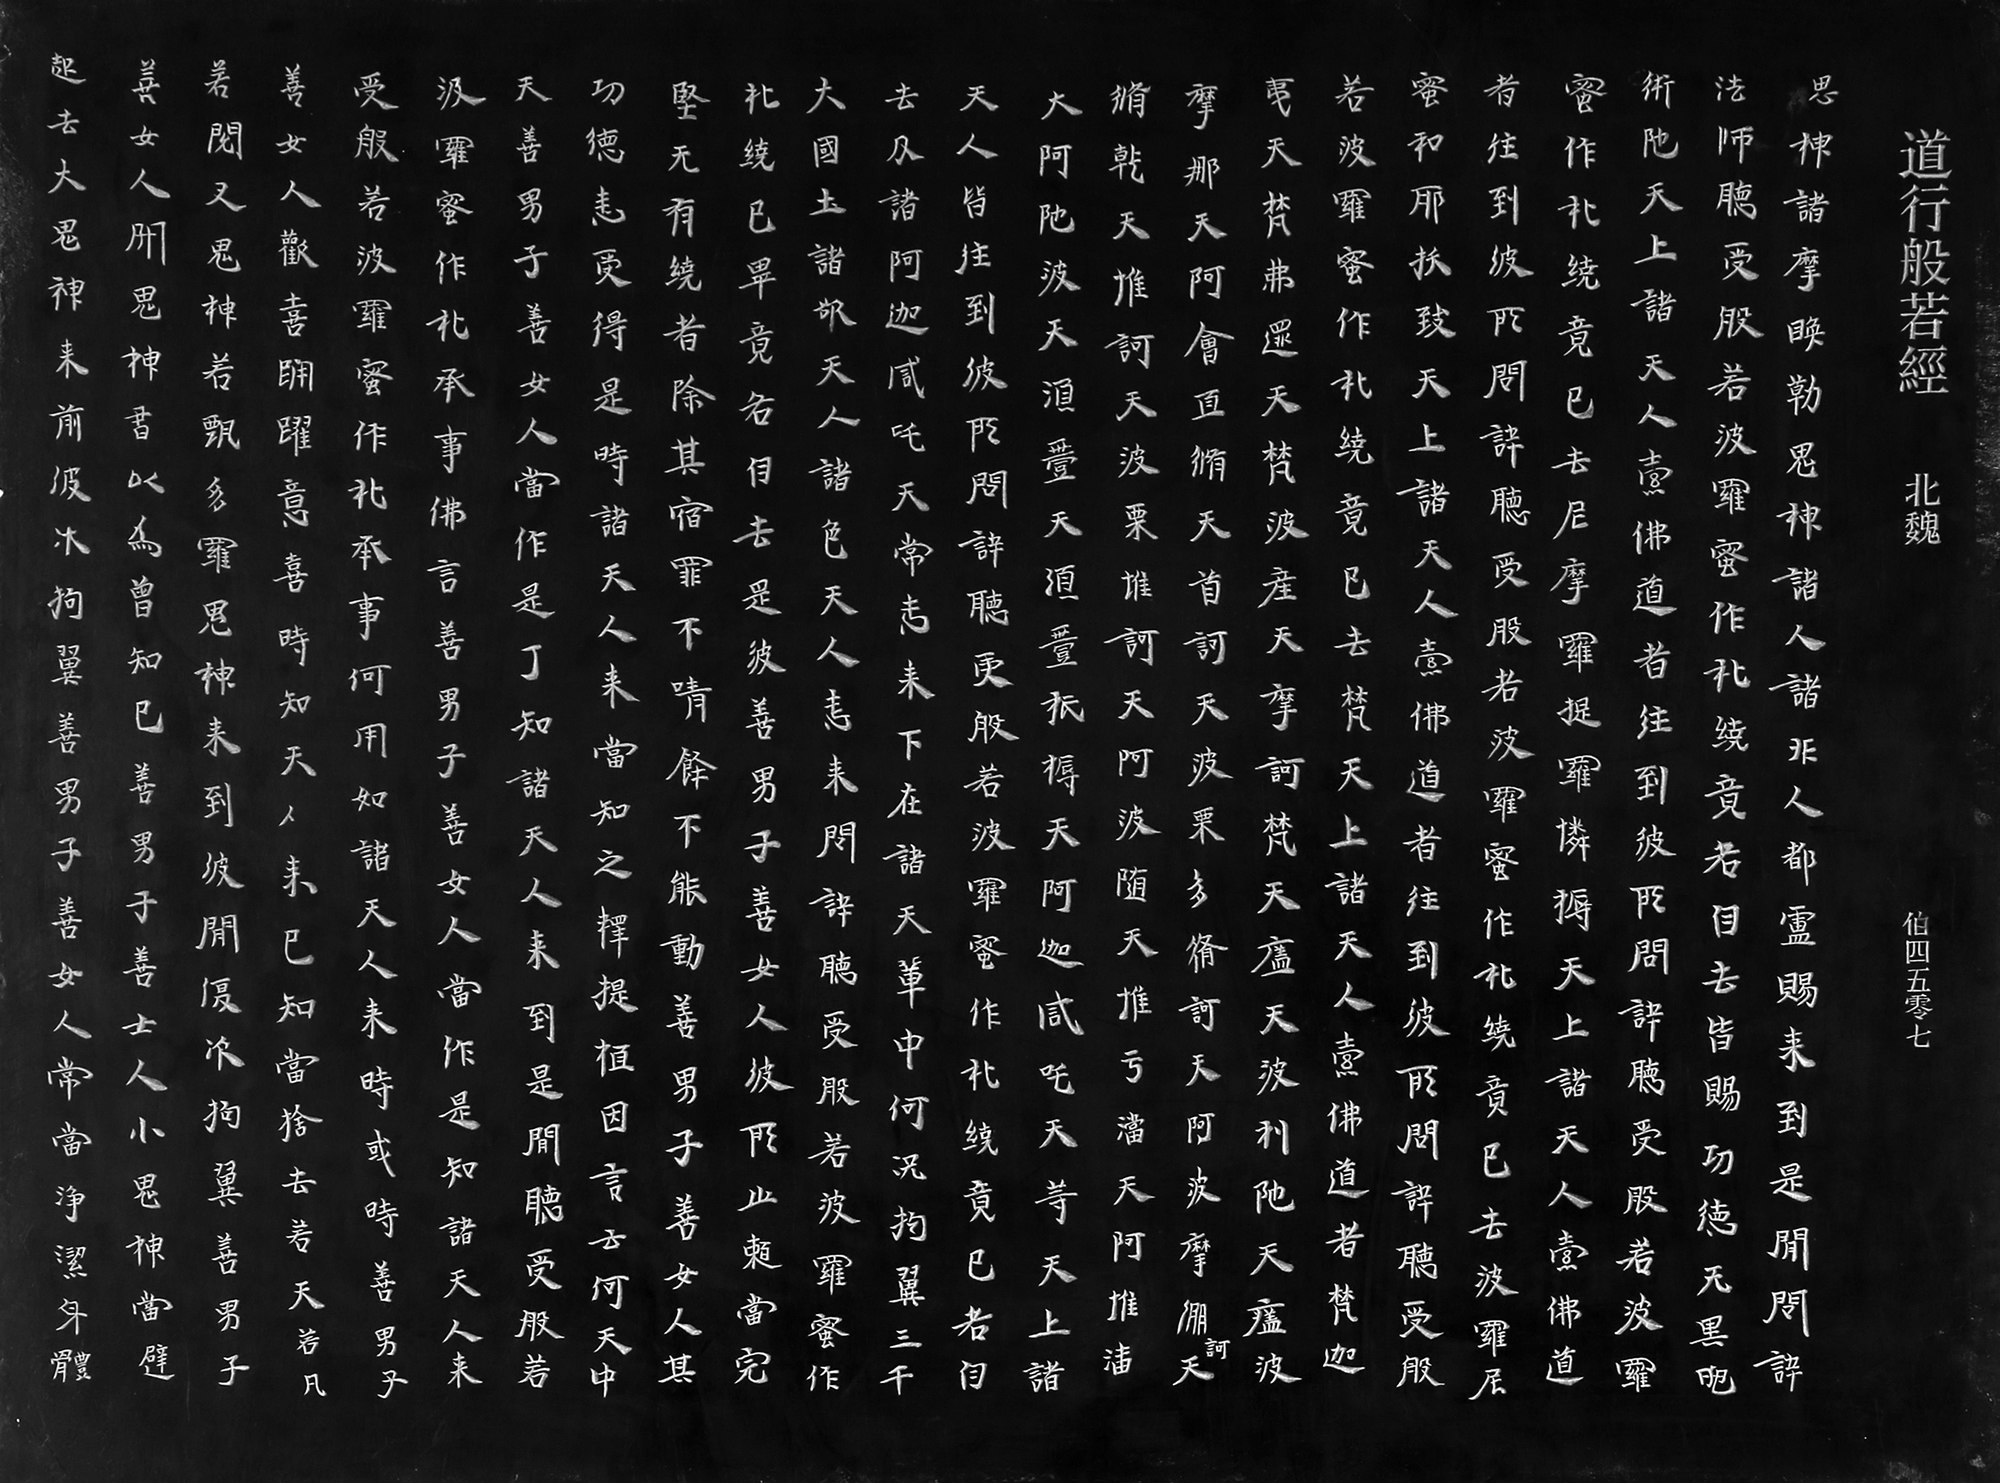 道行般若經 北魏 伯四五零七
思神諸摩睺勒鬼神諸人諸非人都盧賜来到是間問訊
法師聽受般若波羅蜜作礼繞竟各自去皆賜功德无異
術陁天上諸天人索佛道者往到彼所問訊聽受般若波羅
蜜作礼繞竟已去尼摩羅提羅憐耨天上諸天人索佛道
者往到彼所問訊聽受般若波羅蜜作礼繞竟已去波羅尼
蜜和耶拔致天上諸天人索佛道者往到彼所問訊聽受般
若波羅蜜作礼繞竟已去梵天上諸天人索佛道者梵迦
夷天梵弗還天梵波產天摩訶梵天廅天波利陁天廅波
摩那天阿會亘脩天首訶天波栗多脩訶天阿波摩脩訶天
脩乾天惟訶天波栗惟訶天阿波隨天惟亏潘天阿惟潘
大阿陁波天湏䠠天湏䠠祇耨天阿迦貳吒天等天上諸
天人皆往到彼所問訊聽受般若波羅蜜作礼繞竟已各自
去及諸阿迦貳吒天常悉来下在諸天輩中何况拘翼三千
大國土諸欲天人諸色天人悉来問訊聽受般若波羅蜜作
礼繞已畢竟各自去是彼善男子善女人彼所止處當完
堅无有繞者除其宿罪不請餘不能動善男子善女人其
功德悉受得是時諸天人来當知之釋提桓因言云何天中
天善男子善女人當作是丁知諸天人来到是間聽受般若
波羅蜜作礼承事佛言善男子善女人當作是知諸天人来
受般若波羅蜜作礼承事何用如諸天人来時或時善男子
善女人歡喜踊躍意喜時知天人来已知當捨去若天若凡
若閱叉鬼神若甄多羅鬼神来到彼間復次拘翼善男子
善女人聞鬼神香以為曾知已善男子善士人小鬼神當避
起去大鬼神来前彼次拘翼善男子善女人常當淨潔身體